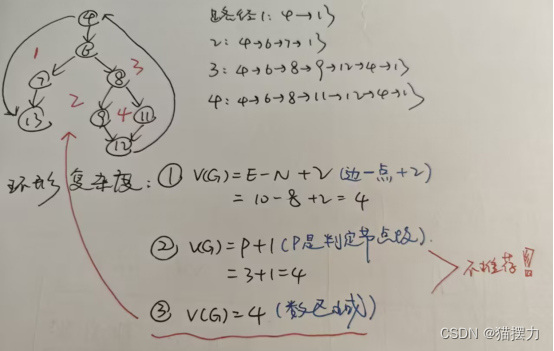 路径1: 4→13
2: 4→6→7→13
3: 4→6→8→9→12→4→13
4: 4→6→8→11→12→4→13
4
6
1
7
8
3
2
13
9
4
11
12
环形复杂度: ① V(G)=E-N+2 (边-点+2)
= 10-8+2=4
② V(G)=P+1 (P是判定节点数).
= 3+1=4
不推荐!
③ V(G)=4 (数区域)
CSDN @猫摆力